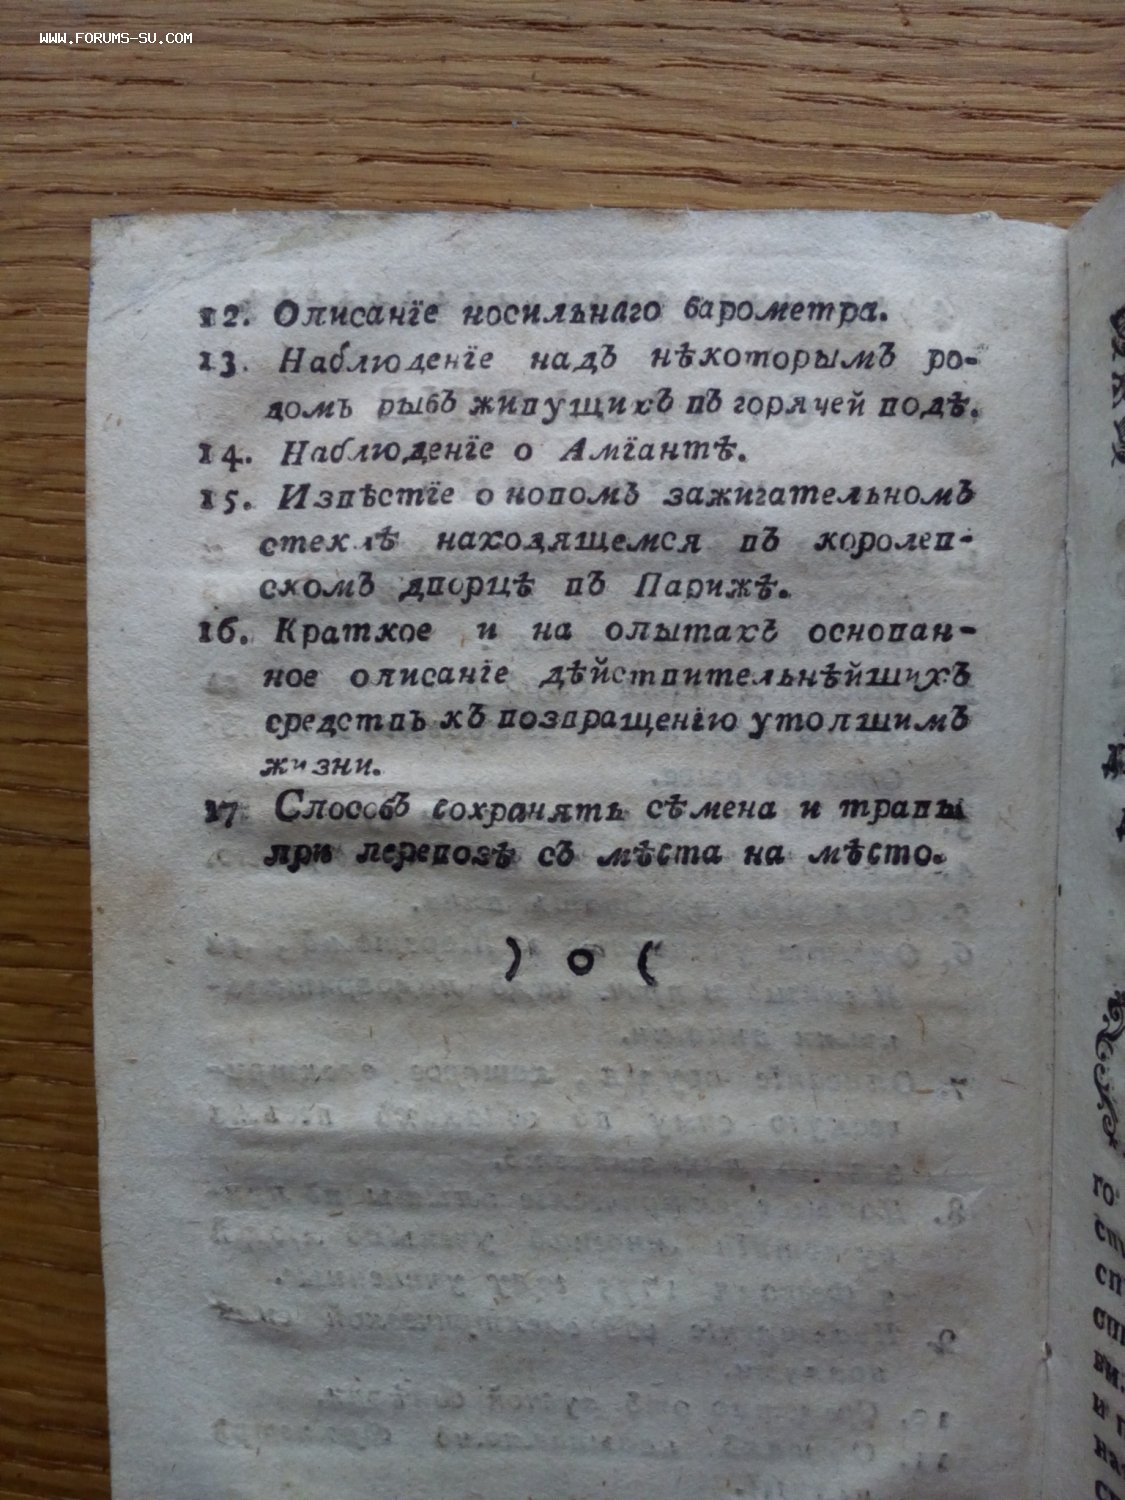 WWW.FORUMS-SU.COM
12. Описанїе носильнаго барометра.
13. Наблюденїе надъ нѣкоторымъ ро-
домъ рыбъ живущихъ въ горячей водѣ.
14. Наблюденїе о Амїантѣ.
15. Извѣстїе о новомъ зажигательномъ
стеклѣ находящемся въ королев-
скомъ дворцѣ въ Парижѣ.
16. Краткое и на опытахъ основан-
ное описанїе дѣйствительнѣйшихъ
средствъ къ возвращенїю утопшимъ
жизни.
17 Способъ сохранять сѣмена и травы
при перевозѣ съ мѣста на мѣсто.
) о (